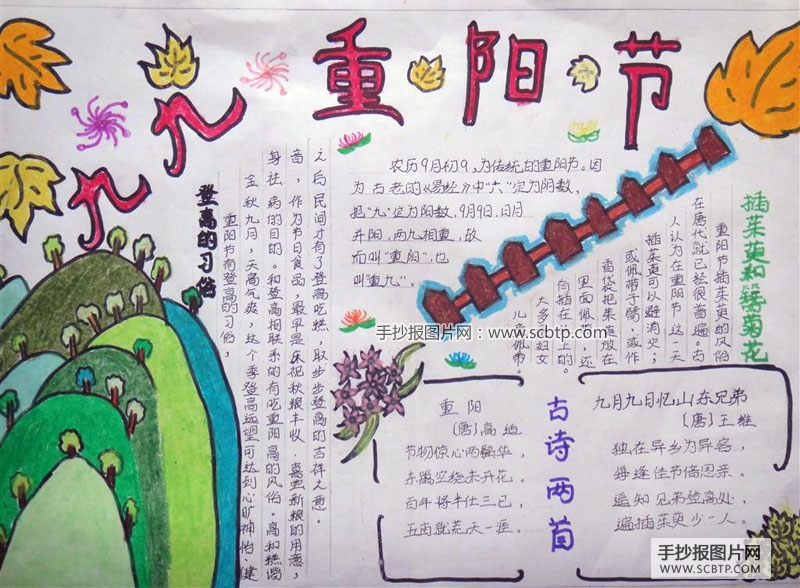 九九重阳节
农历9月初9,为传统的重阳节。因
为古老的《易经》中"六"定为阴数,
把"九"定为阳数,9月9日,日月
并阳,两九相重,故
而叫"重阳",也
叫"重九"。
登高的习俗
重阳节有登高的习俗,
金秋九月,天高气爽,这个季登高远望可达到心旷神怡 健
身祛病的目的。和登高相联系的有吃重阳高的风俗。高和糕谐
音,作为节日食品,最早是庆祝秋粮丰收、喜尝新粮的用意,
之后民间才有了登高吃糕,取步步登高的吉祥之意。
插茱萸和簪菊花
重阳节插茱萸的风俗
在唐代就已经很普遍。古
人认为在重阳节这一天
插茱萸可以避消灾;
或佩带于臂,或作
香袋把茱萸放在
里面佩带,还有
插在头上的。
大多是妇女
儿童佩带
手抄报图片网:www.scbtp.com
古诗两首
重阳
(唐)高适
节物惊心两鬓华,
东篱空绕未开花。
百年将半仕三已,
五亩就荒天一涯。
九月九日忆山东兄弟
〔唐〕王维
独在异乡为异客,
每逢佳节倍思亲。
遥知兄弟登高处,
遍插茱萸少一人。
手抄报图片网
WWW.SCBTP.COM